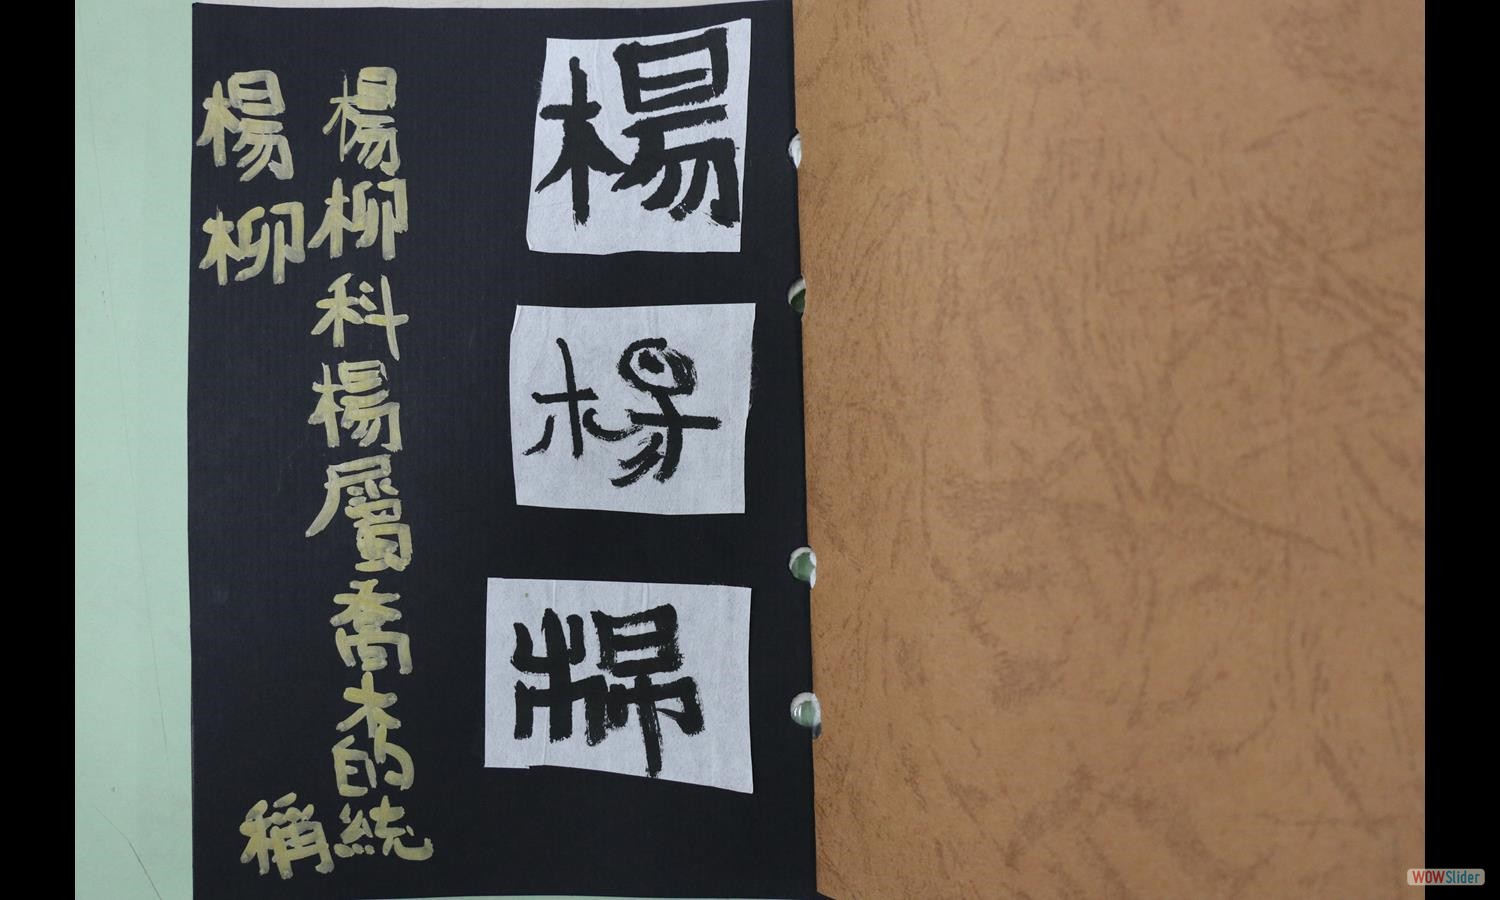 楊
楊柳科楊屬喬木的統
稱
楊柳
WOWSlider